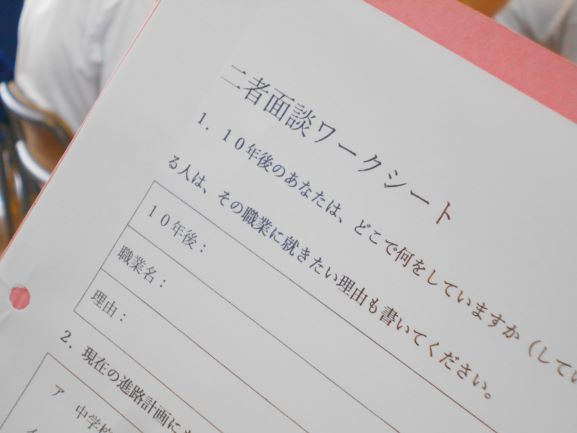 二者面談ワークシート
1. 10年後のあなたは、どこで何をしていますか（してい
る人は、その職業に就きたい理由も書いてください。
10年後：
職業名：
理由：
2. 現在の進路計画に
ア 中学校